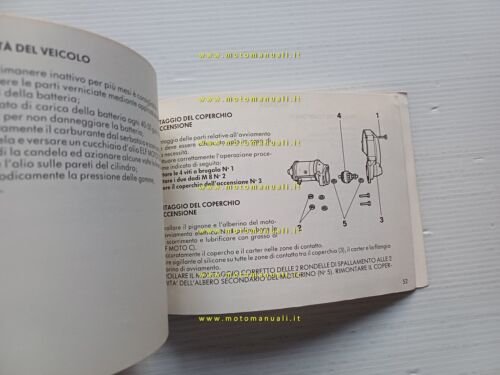 www.motomanuali.it
TÀ DEL VEICOLO
rimanere inattivo per più mesi è consigl
ere le parti verniciate mediante appli
della batteria;
ato di carica della batteria ogni 40-
per non danneggiare la batteria,
ramente il carburante dal serbatoio
ela e versare un cucchiaio d'olio
la candela ed azionare alcune volte
l'olio sulle pareti del cilindro;
odicamente la pressione delle gomme.
TAGGIO DEL COPERCHIO
CCENSIONE
ggio delle parti relative all'avviamento
deve essere
necessita.
tuare correttamente l'operazione proce-
me indicato di seguito:
re le 4 viti a brugola N° 1
ntare i due dadi M 8 N° 2
re il coperchio dell'accensione N° 3
4 1
2 5 3
NTAGGIO DEL COPERCHIO
CCENSIONE
rollare il pignone e l'alberino del moto-
avviamento
scorrimento e lubrificare con grasso al
F MOTO C).
tamente il coperchio e il carter nelle zone di contatto.
re sigillante al silicone su tutte le zone di contatto tra il coperchio (3), il carter e la flangia
rino di avviamento.
ROLLARE IL MONTAGGIO CORRETTO DELLE 2 RONDELLE DI SPALLAMENTO ALLE 2
VITA' DELL'ALBERO SECONDARIO DEL MOTORINO (N° 5). RIMONTARE IL COPER-
53
www.motomanuali.it
www.motomanuali.it